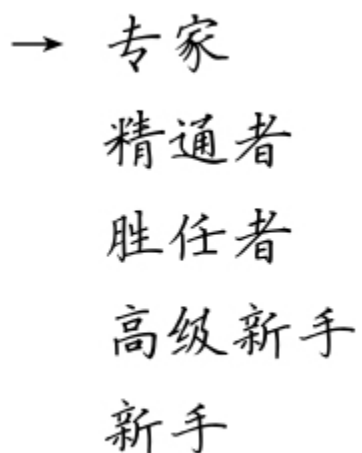 → 专家
精通者
胜任者
高级新手
新手